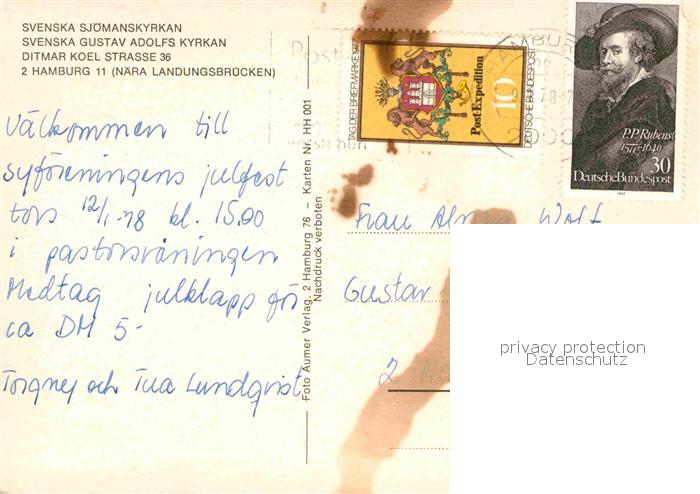 SVENSKA SJÖMANSKYRKAN
SVENSKA GUSTAV ADOLFS KYRKAN
DITMAR KOEL STRASSE 36
2 HAMBURG 11 (NÄRA LANDUNGSBRÜCKEN)
Välkommen till
syföreningens julfest
tors 12/1-78 kl. 15.00
i pastorsvåningen
Medtag julklapp för
ca DM 5-
Torgney och Tua Lundqvist
Foto Aumer Verlag, 2 Hamburg 76 – Karten Nr. HH 001
Nachdruck verboten
TAG DER BRIEFMARKE 1977
Post-Expedition
10
DEUTSCHE BUNDESPOST
HAMBURG
P.P. Rubens
1577-1640
30
Deutsche Bundespost
Frau Wolf
Gustav
2
privacy protection
Datenschutz